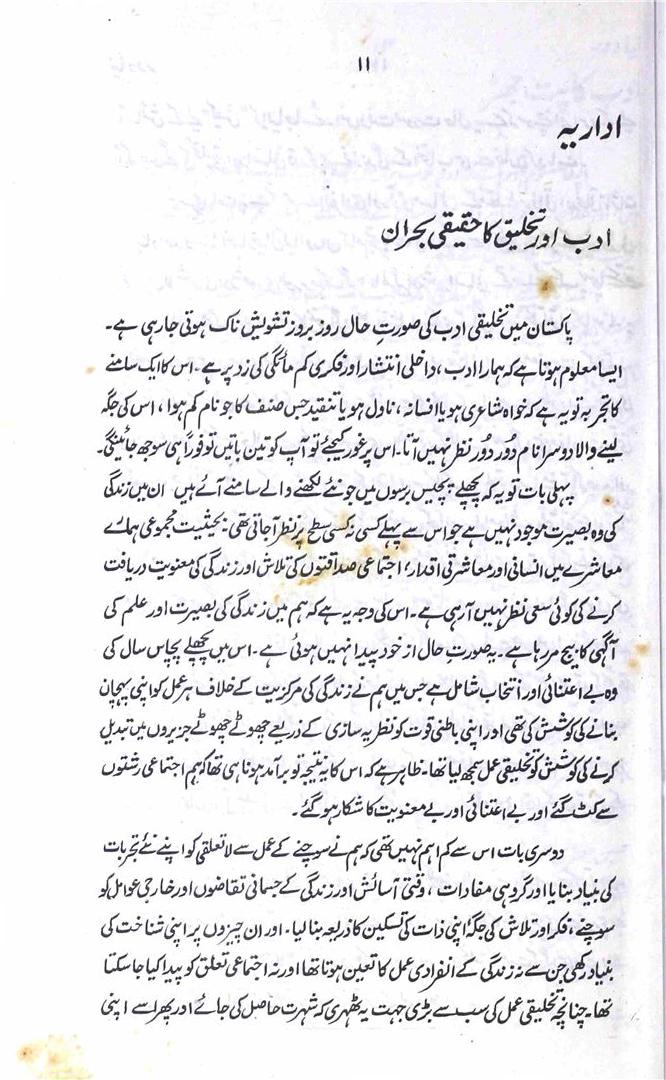 ۱۱
اداریہ
ادب اور تخلیق کا حقیقی بحران
پاکستان میں تخلیقی ادب کی صورتِ حال روز بروز تشویش ناک ہوتی جا رہی ہے۔
ایسا معلوم ہوتا ہے کہ ہمارا ادب، داخلی انتشار اور فکری کم مائگی کی زد پر ہے۔ اس کا ایک سامنے
کا تجربہ تو یہ ہے کہ خواہ شاعری ہو یا افسانہ، ناول ہو یا تنقید جس صنف کا جو نام کم ہوا، اس کی جگہ
لینے والا دوسرا نام دُور دُور نظر نہیں آتا۔ اس پر غور کیجئے تو آپ کو تین باتیں تو فوراً ہی سوجھ جائینگی۔
پہلی بات تو یہ کہ پچھلے پچیس برسوں میں جو نئے لکھنے والے سامنے آئے ہیں ان میں زندگی
کی وہ بصیرت موجود نہیں ہے جو اس سے پہلے کسی نہ کسی سطح پر نظر آجاتی تھی؛ بحیثیت مجموعی ہمارے
معاشرے میں انسانی اور معاشرتی اقدار، اجتماعی صداقتوں کی تلاش اور زندگی کی معنویت دریافت
کرنے کی کوئی سعی نظر نہیں آ رہی ہے۔ اس کی وجہ یہ ہے کہ ہم میں زندگی کی بصیرت اور علم کی
آگہی کا بیج مر رہا ہے۔ یہ صورتِ حال از خود پیدا نہیں ہوئی ہے۔ اس میں پچھلے پچاس سال کی
وہ بے اعتنائی اور انتخاب شامل ہے جس میں ہم نے زندگی کی مرکزیت کے خلاف ہر عمل کو اپنی پہچان
بنانے کی کوشش کی تھی اور اپنی باطنی قوت کو نظریہ سازی کے ذریعے چھوٹے چھوٹے جزیروں میں تبدیل
کرنے کی کوشش کو تخلیقی عمل سمجھ لیا تھا۔ ظاہر ہے کہ اس کا یہ نتیجہ تو برآمد ہونا ہی تھا کہ ہم اجتماعی رشتوں
سے کٹ گئے اور بے اعتنائی اور بے معنویت کا شکار ہو گئے۔
دوسری بات اس سے کم اہم نہیں تھی کہ ہم نے سوچنے کے عمل سے لاتعلقی کو اپنے نئے تجربات
کی بنیاد بنایا اور گروہی مفادات، وقتی آسائش اور زندگی کے جسمانی تقاضوں اور خارجی عوامل کو
سوچنے، فکر اور تلاش کی جگہ اپنی ذات کی تسکین کا ذریعہ بنا لیا۔ اور ان چیزوں پر اپنی شناخت کی
بنیاد رکھی جن سے نہ زندگی کے انفرادی عمل کا تعین ہوتا تھا اور نہ اجتماعی تعلق کو پیدا کیا جا سکتا
تھا۔ چنانچہ تخلیقی عمل کی سب سے بڑی جہت یہ ٹھہری کہ شہرت حاصل کی جائے اور پھر اسے اپنی